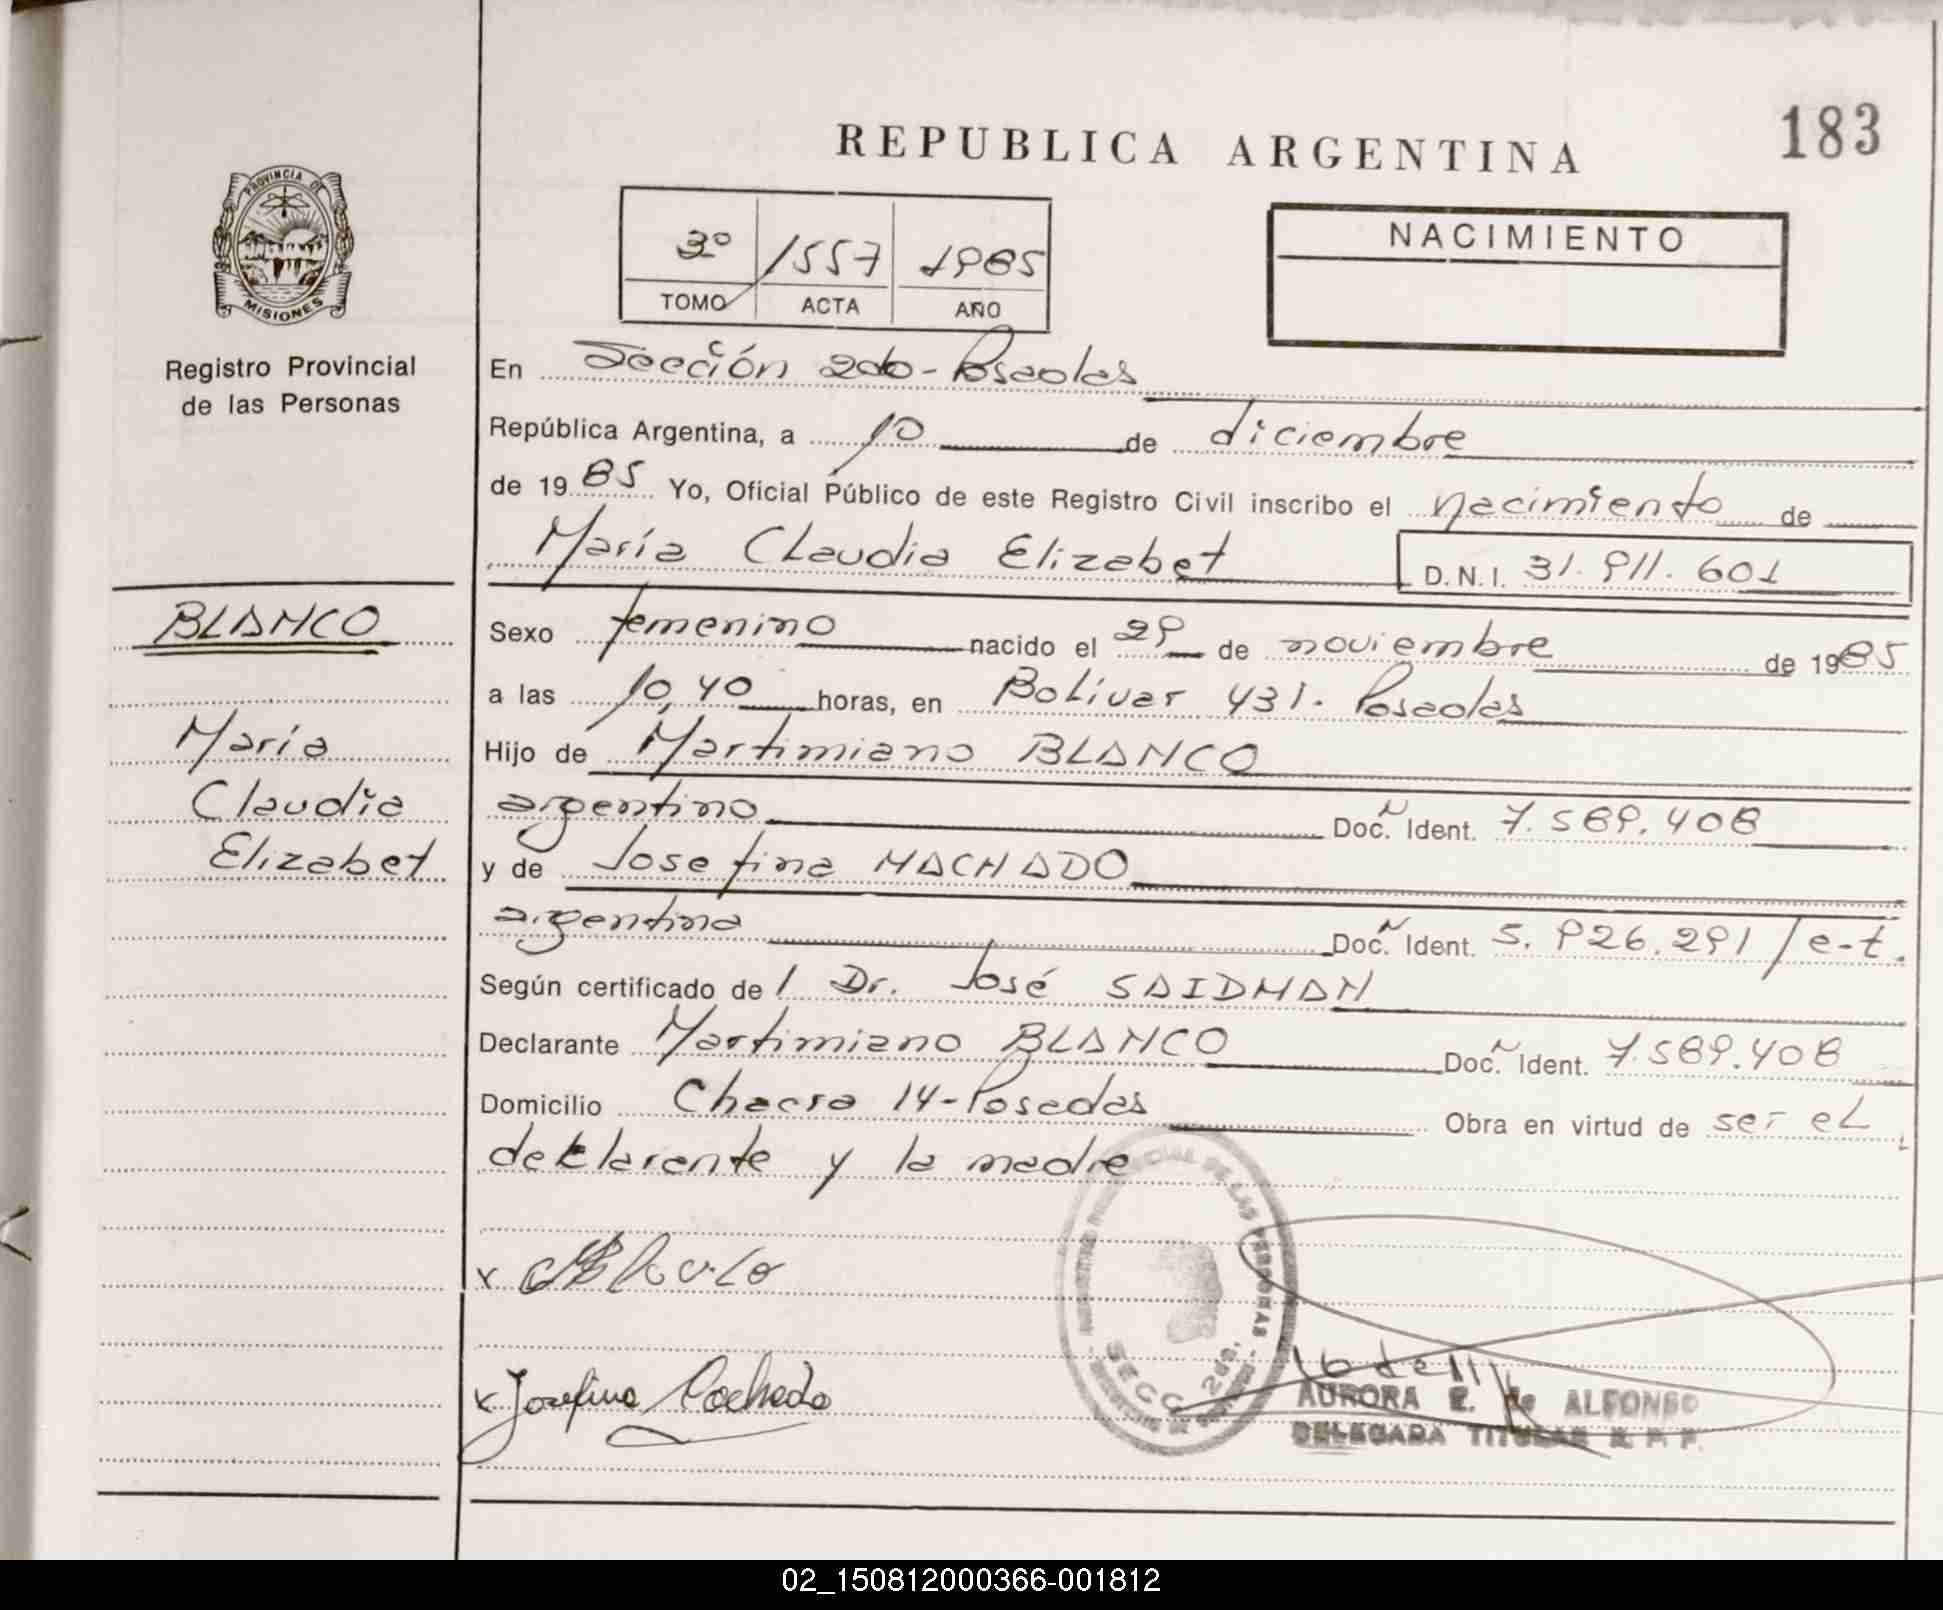 183
REPUBLICA ARGENTINA
PROVINCIA DE
MISIONES
Registro Provincial
de las Personas
3º 1557 1985
TOMO ACTA AÑO
NACIMIENTO
En Sección 2da - Posadas
República Argentina, a 10 de diciembre
de 1985 Yo, Oficial Público de este Registro Civil inscribo el nacimiento de
María Claudia Elizabet D.N.I. 31.911.601
BLANCO
María
Claudia
Elizabet
Sexo femenino nacido el 29 de noviembre de 1985
a las 10,40 horas, en Bolívar 431. Posadas
Hijo de Martimiano BLANCO
argentino Doc. Ident. 7.589.408
y de Josefina MACHADO
argentina Doc. Ident. 5.926.291/e-t.
Según certificado de l Dr. José SAIDMAN
Declarante Martimiano BLANCO Doc. Ident. 7.589.408
Domicilio Chacra 14-Posadas Obra en virtud de ser el
declarante y la madre
x
x Josefina Machado
SECC. 2da.
AURORA E. de ALFONSO
DELEGADA TITULAR R. P. P.
02_150812000366-001812